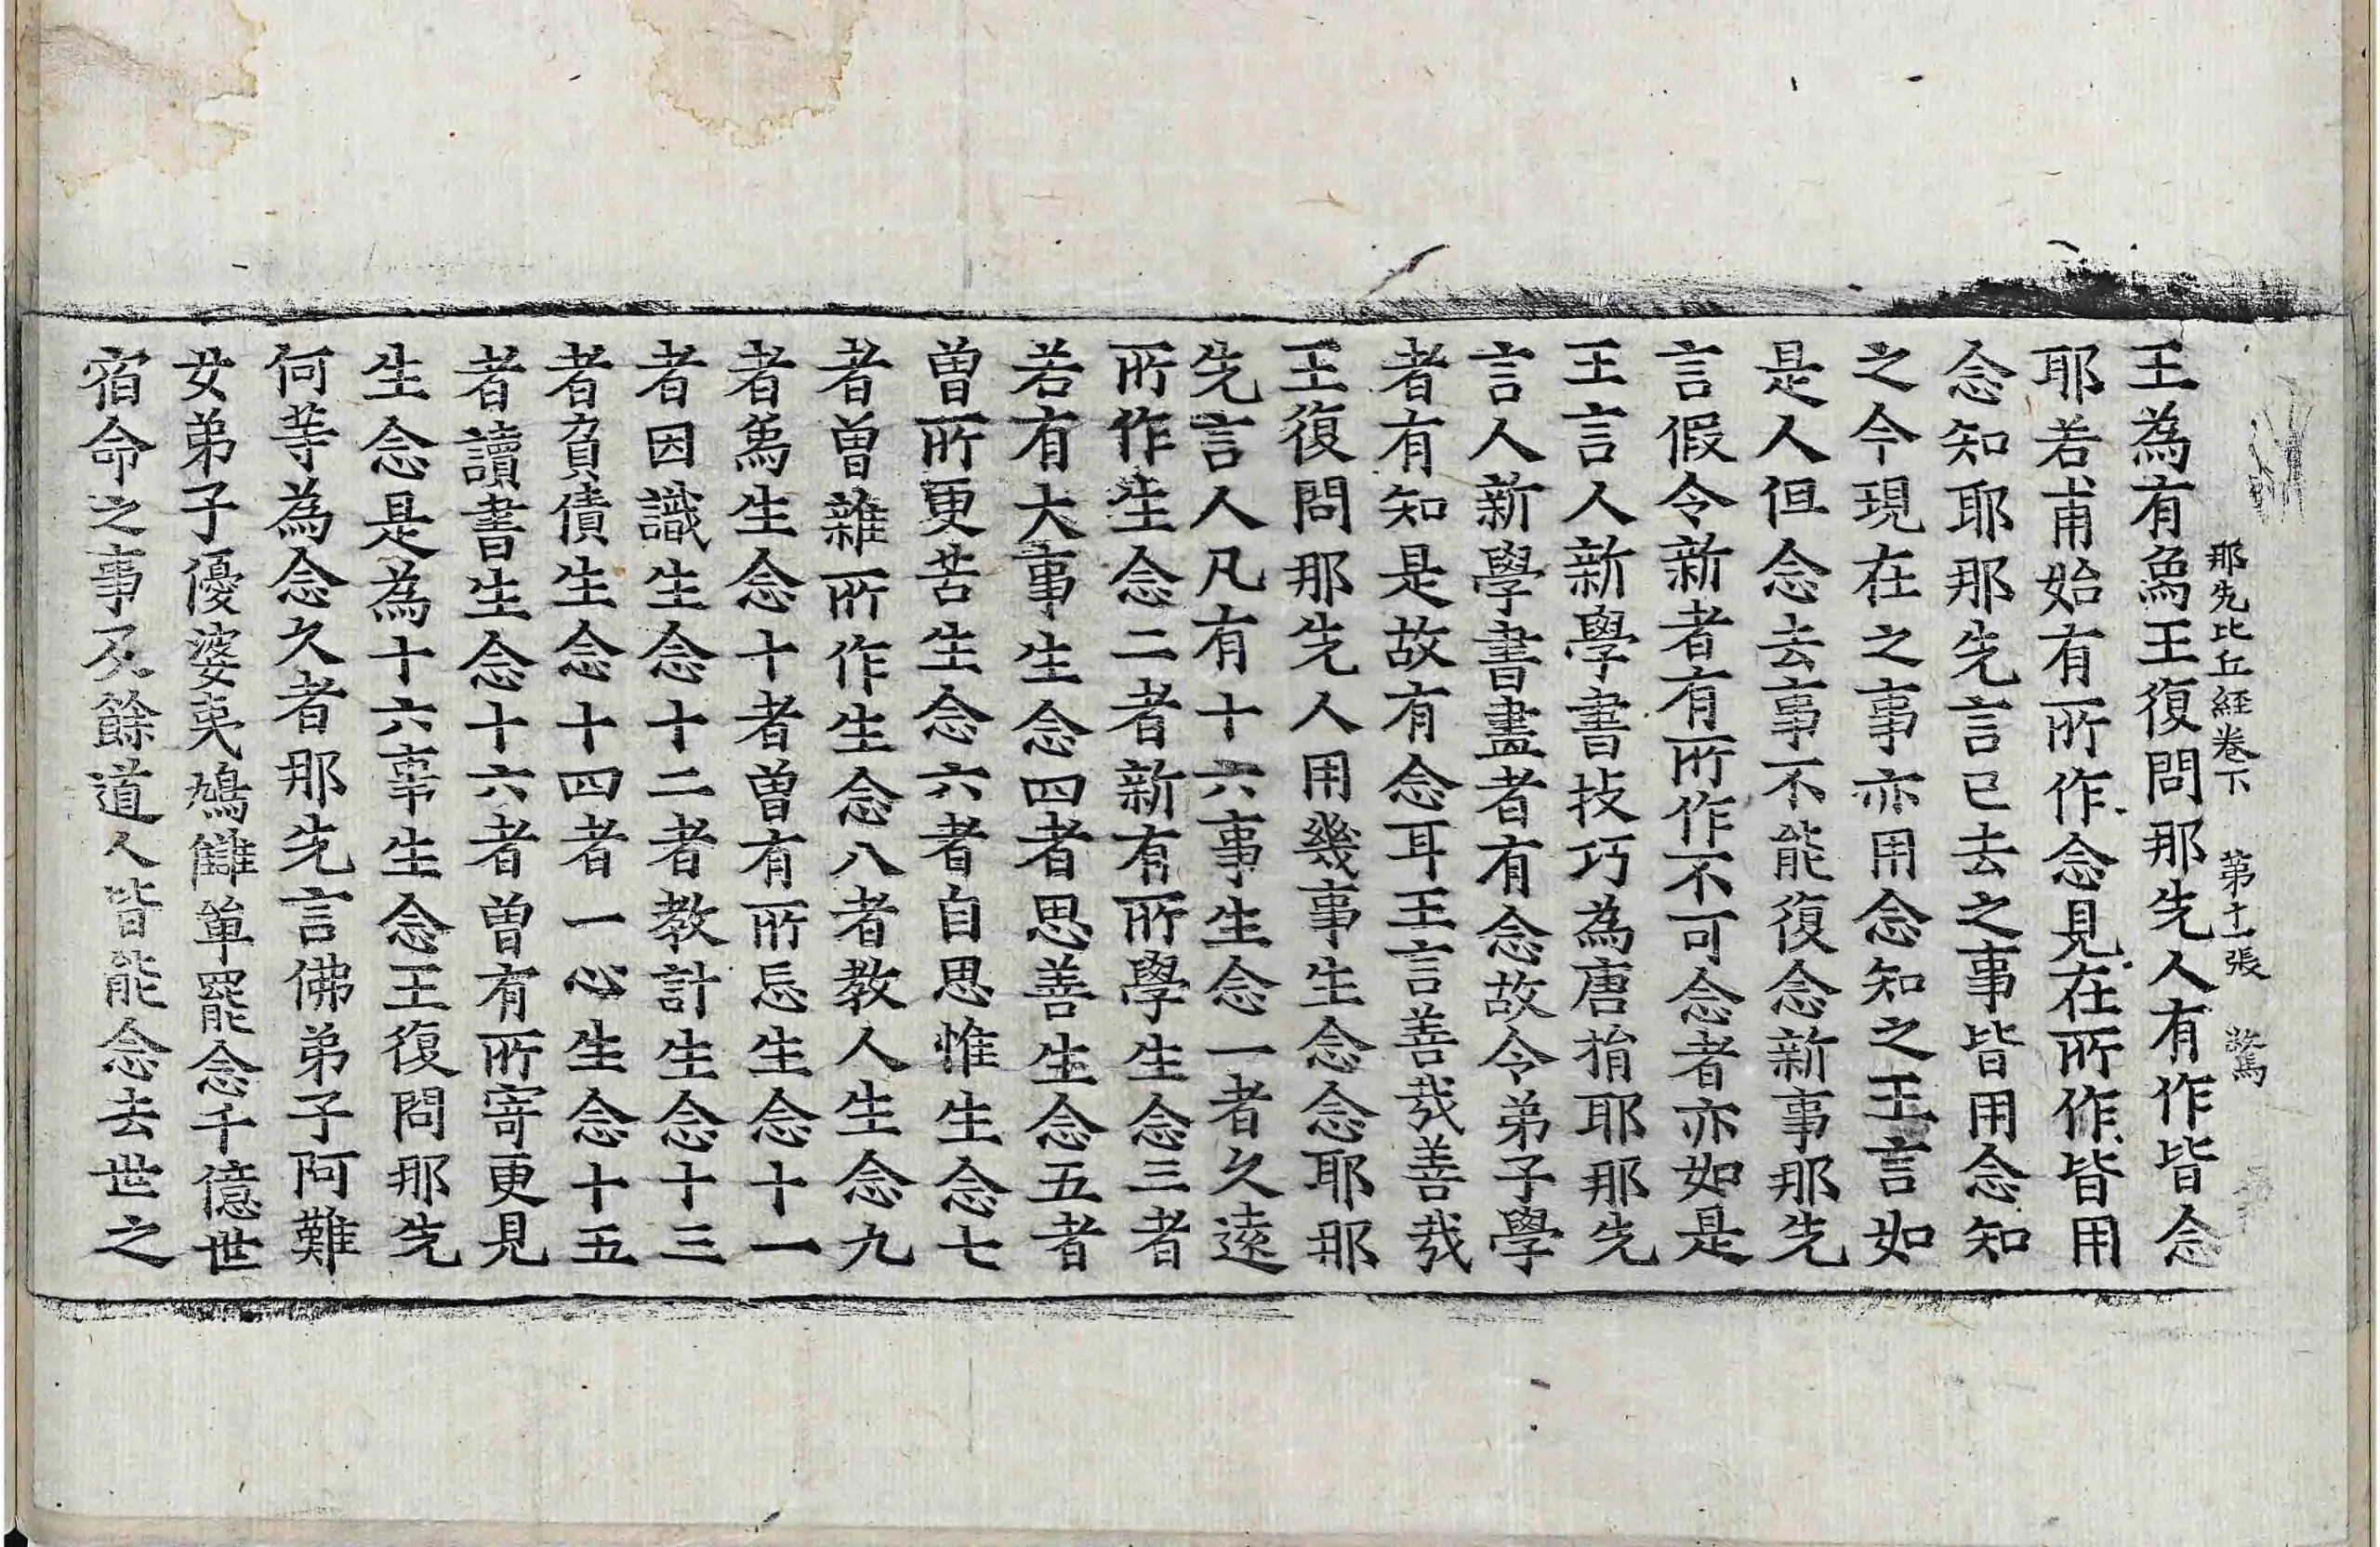 那先比丘経卷下　第十一張　驚
王為有爲王復問那先人有作皆念
耶若甫始有所作念見在所作皆用
念知耶那先言已去之事皆用念知
之今現在之事亦用念知之王言如
是人但念去事不能復念新事那先
言假令新者有所作不可念者亦如是
王言人新學書技巧為唐捐耶那先
言人新學書畫者有念故令弟子學
者有知是故有念耳王言善哉善哉
王復問那先人用幾事生念念耶那
先言人凡有十六事生念一者久遠
所作生念二者新有所學生念三者
若有大事生念四者思善生念五者
曾所更苦生念六者自思惟生念七
者曾雜所作生念八者教人生念九
者爲生念十者曾有所忘生念十一
者因識生念十二者教計生念十三
者負債生念十四者一心生念十五
者讀書生念十六者曾有所寄更見
生念是為十六事生念王復問那先
何等為念久者那先言佛弟子阿難
女弟子優婆夷鳩讎單罷念千億世
宿命之事及餘道人皆能念去世之